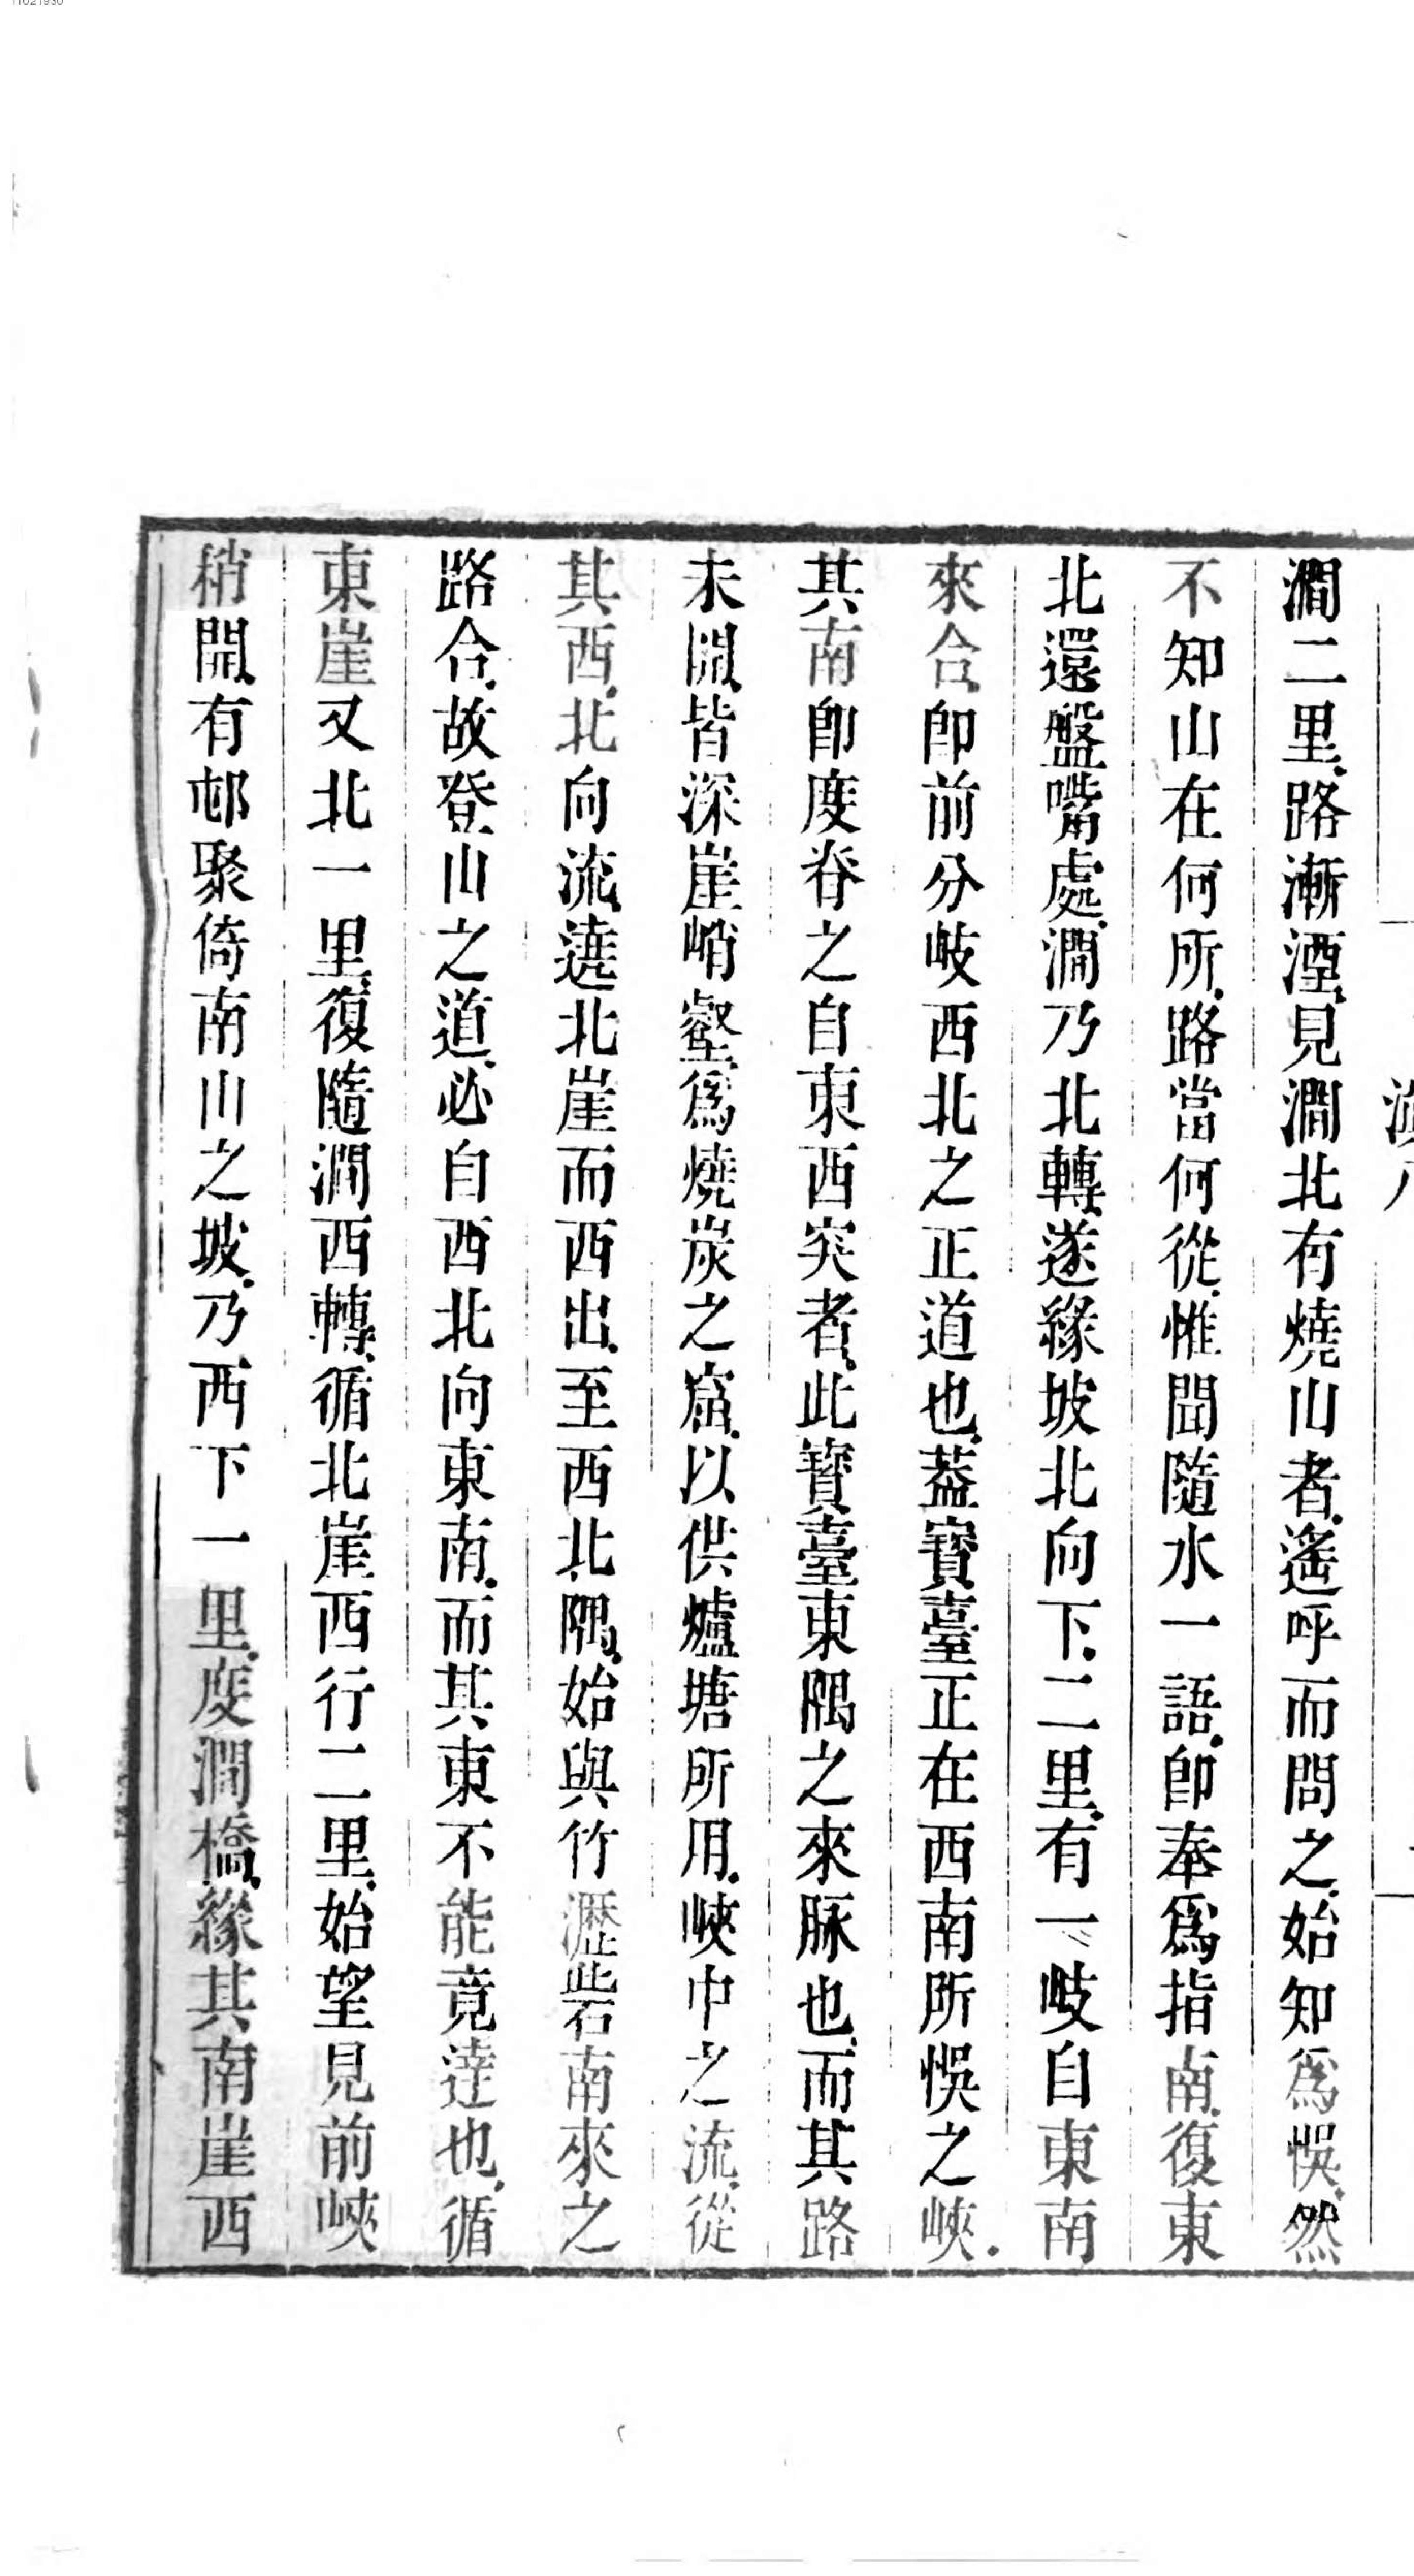 澗二里。路漸湮。見澗北有燒山者。遙呼而問之。始知爲悞。然
不知山在何所。路當何從。惟聞隨水一語。卽奉爲指南。復東
北還盤嘴處。澗乃北轉。遂緣坡北向下。二里。有一岐自東南
來合。卽前分岐西北之正道也。葢寶臺正在西南所悞之峽。
其南卽度脊之自東西突者。此寶臺東隅之來脉也。而其路
未開。皆深崖峭壑。爲燒炭之窟。以供爐塘所用。峽中之流。從
其西。北向流。遶北崖而西出。至西北隅。始與竹瀝砦南來之
路合。故登山之道。必自西北向東南。而其東不能竟達也。循
東崖又北一里。復隨澗西轉。循北崖西行二里。始望見前峽
稍開。有邨聚倚南山之坡。乃西下一里。度澗橋。緣其南崖西